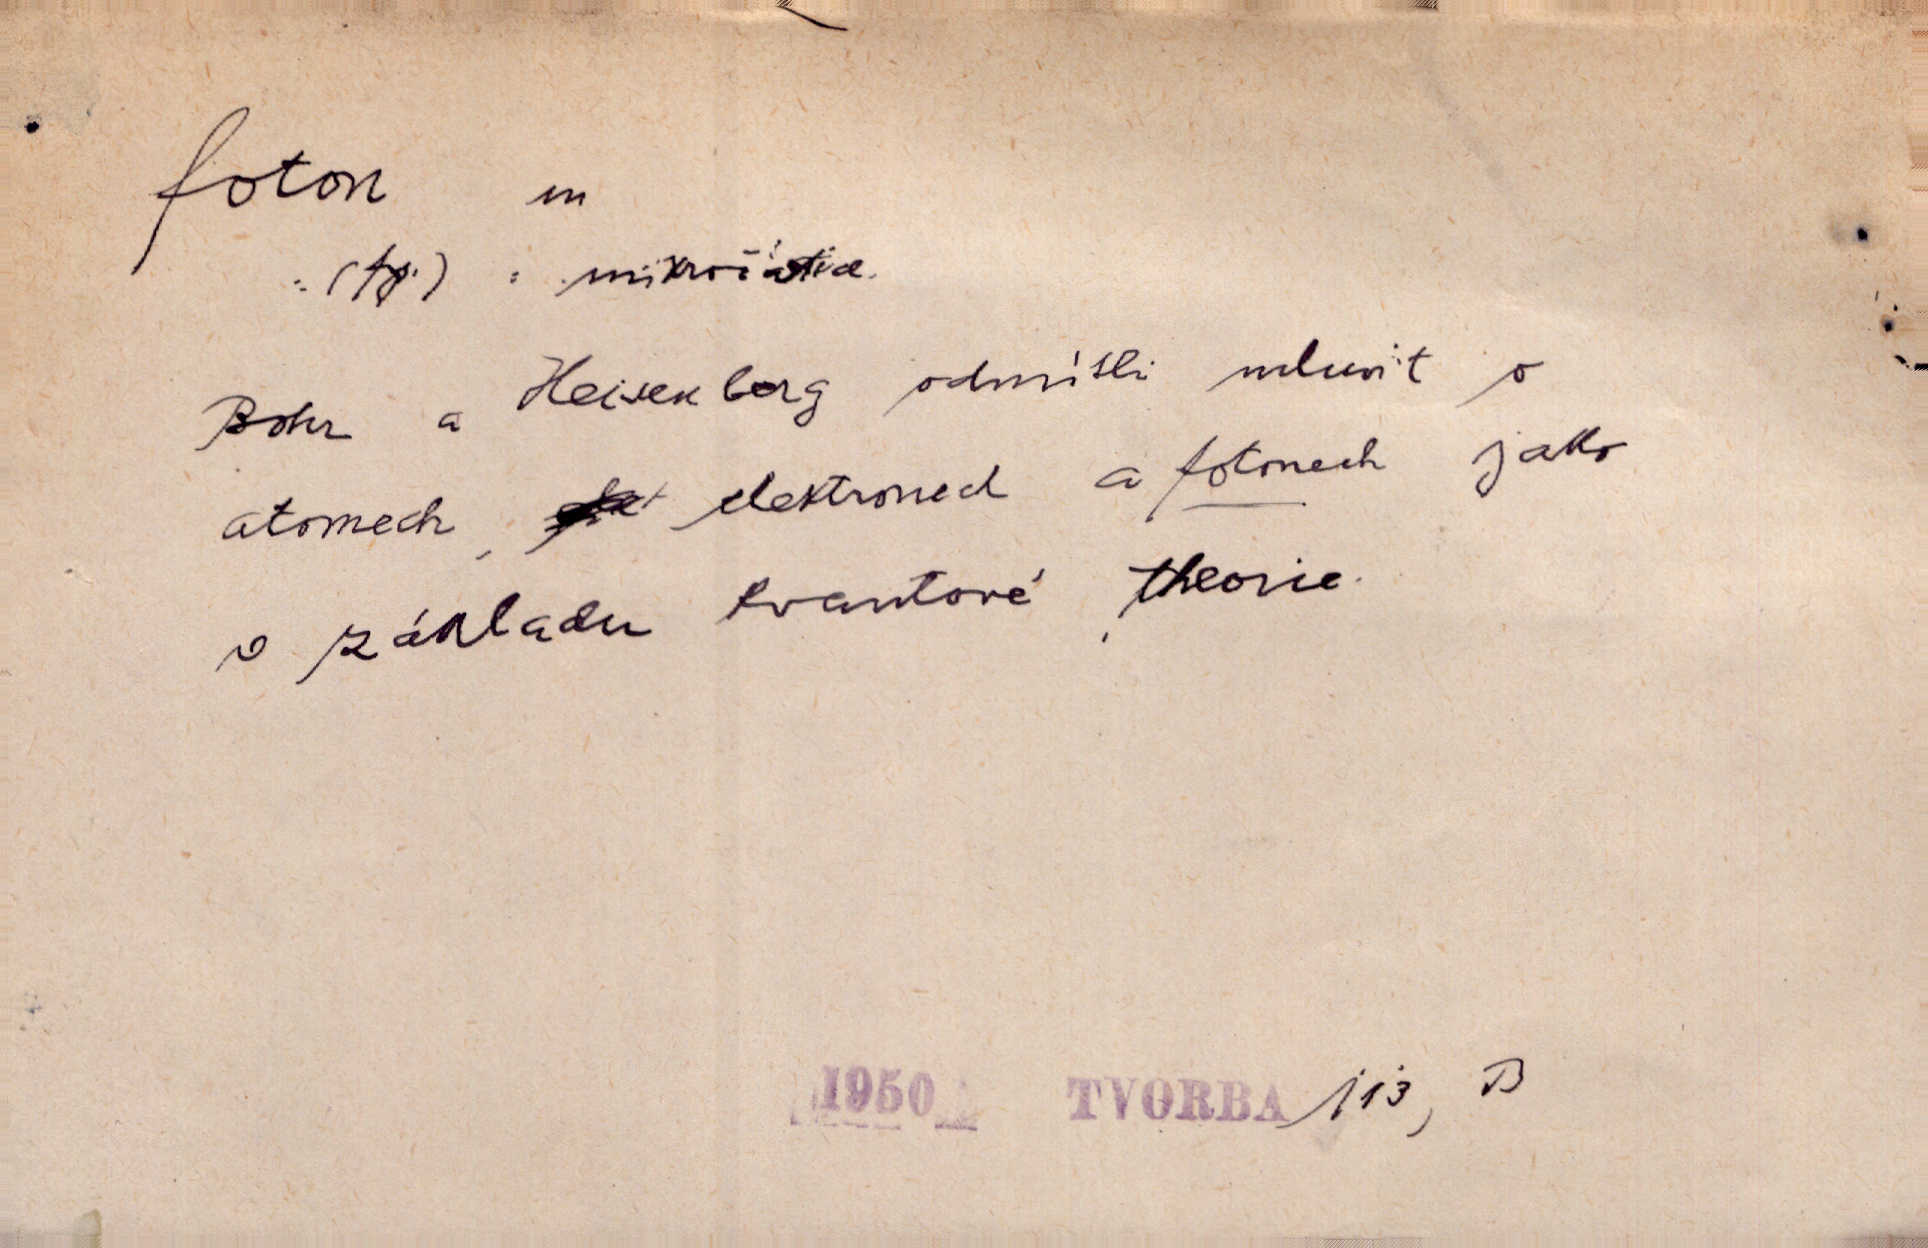 foton m
: (fy.) : mikročástice.
Bohr a Heisenberg odmítli mluvit o
atomech, elektronech a fotonech jako
o základu kvantové theorie.
1950 TVORBA 113, B